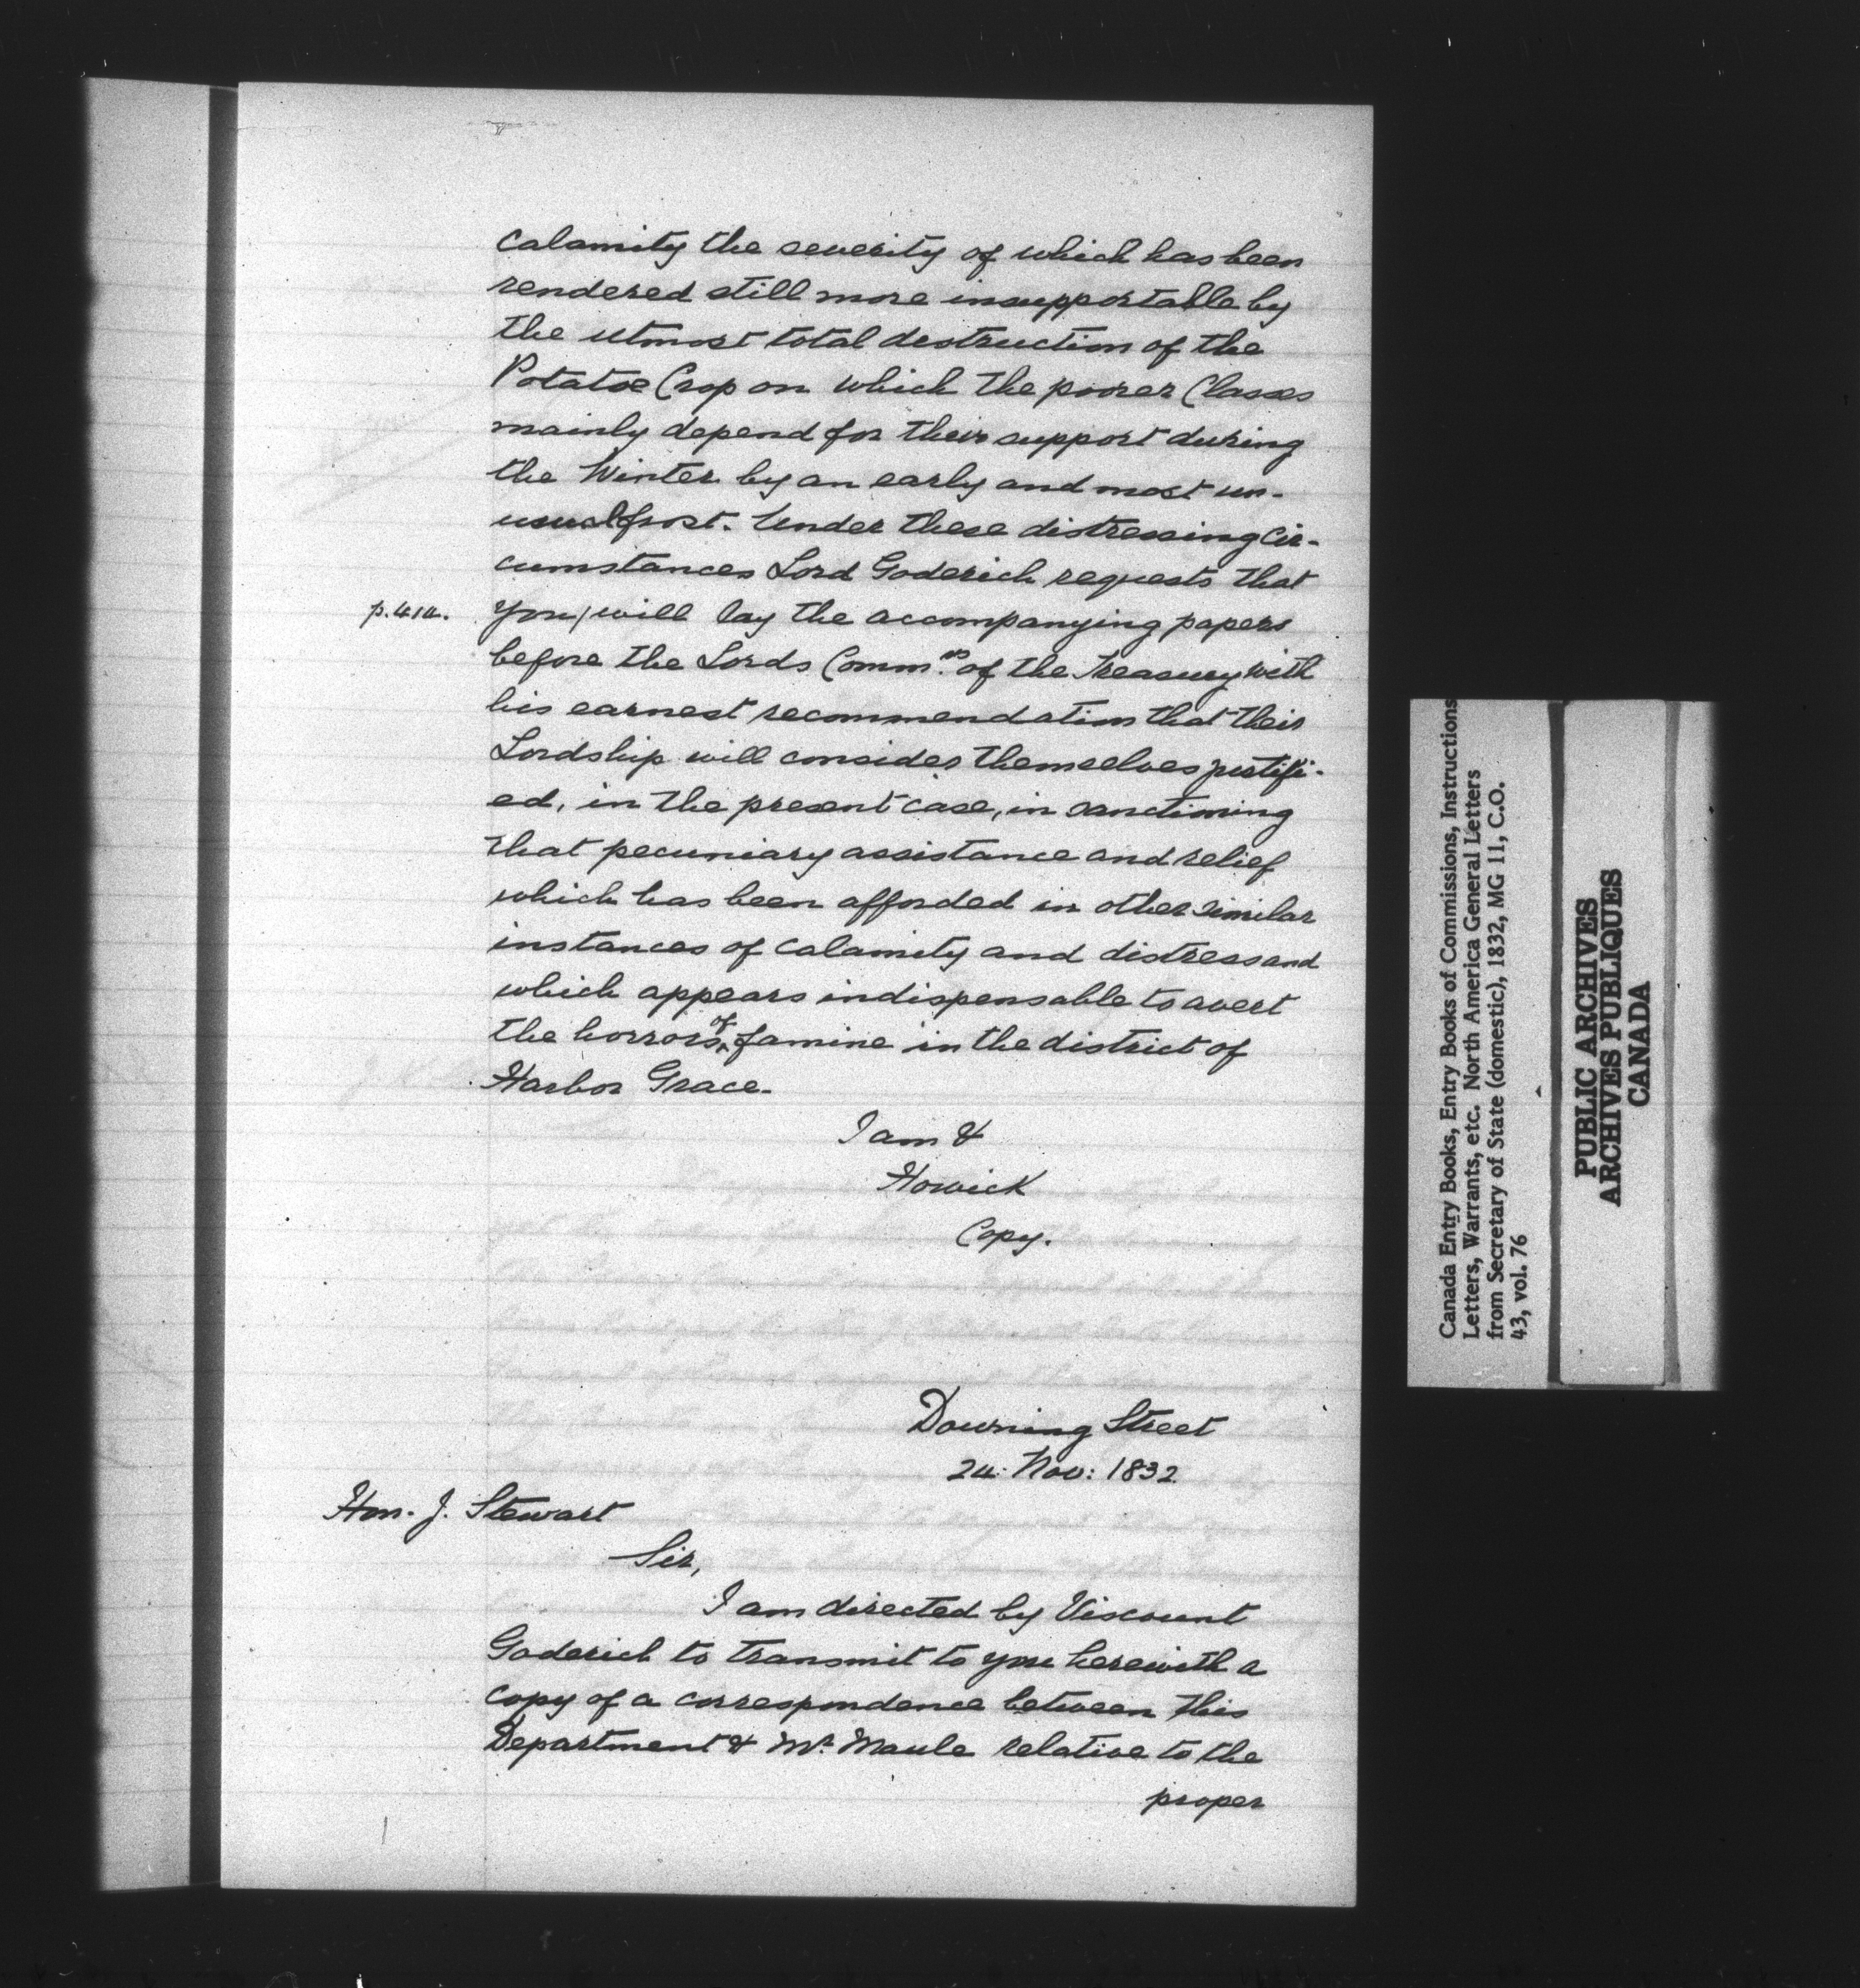 calamity the severity of which has been
rendered still more insupportable by
the utmost total destruction of the
Potatoe Crop on which the poorer Classes
mainly depend for their support during
the Winter by an early and most un-
usual frost. Under these distressing Cir-
cumstances Lord Goderich requests that
p. 414. you/will lay the accompanying papers
before the Lords Comm.rs of the Treasury with
his earnest recommendation that their
Lordship will consider themselves justifi-
ed, in the present case, in sanctioning
that pecuniary assistance and relief
which has been afforded in other similar
instances of calamity and distress and
which appears indispensable to avert
the horrors of famine in the district of
Harbor Grace.
I am &
Howick
Copy.
Downing Street
24 Nov: 1832
Hon. J. Stewart
Sir,
I am directed by Viscount
Goderich to transmit to you herewith a
copy of a correspondence between this
Department & Mr. Maule relative to the
proper
Canada Entry Books, Entry Books of Commissions, Instructions
Letters, Warrants, etc. North America General Letters
from Secretary of State (domestic), 1832, MG 11, C.O.
43, vol. 76
PUBLIC ARCHIVES
ARCHIVES PUBLIQUES
CANADA